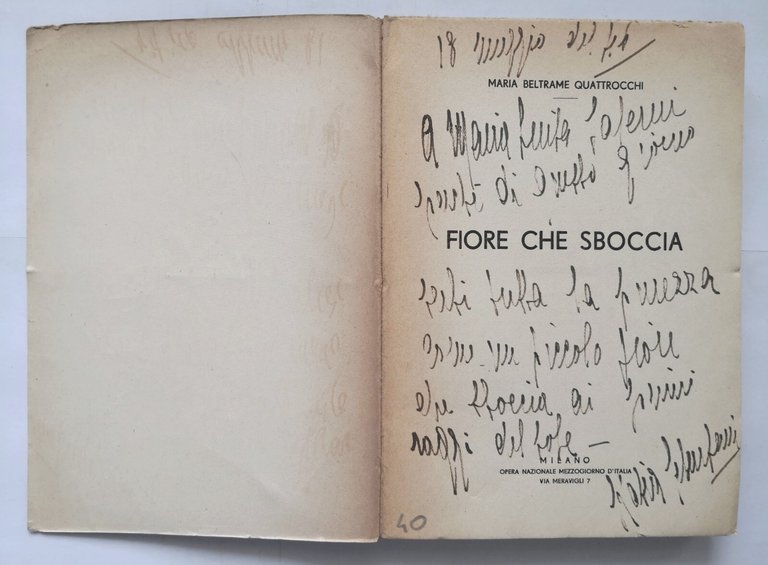 18 maggio del
MARIA BELTRAME QUATTROCCHI
A Maria
di questo giorno
FIORE CHE SBOCCIA
tutta la purezza
come un piccolo fiore
che sboccia ai primi
raggi del sole —
MILANO
OPERA NAZIONALE MEZZOGIORNO D'ITALIA
VIA MERAVIGLI 7
Maria
40